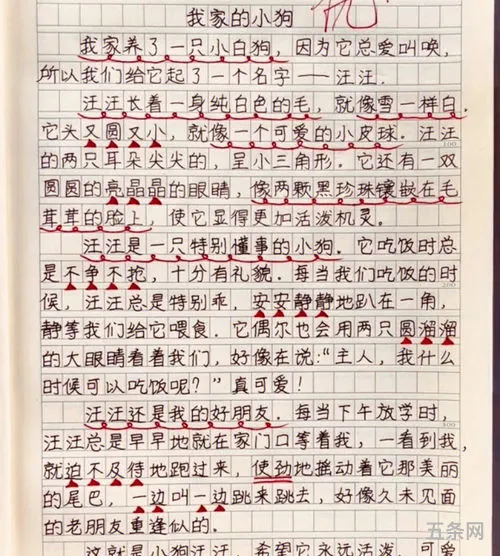 我家的小狗
优
我家养了一只小白狗，因为它总爱叫唤，
所以我们给它起了一个名字——汪汪.
汪汪长着一身纯白色的毛，就像雪一样白.
它头又圆又小，就像一个可爱的小皮球. 汪汪
100
的两只耳朵尖尖的，呈小三角形. 它还有一双
圆圆的亮晶晶的眼睛，像两颗黑珍珠镶嵌在毛
茸茸的脸上，使它显得更加活泼机灵.
汪汪是一只特别懂事的小狗. 它吃饭时总
是不争不抢，十分有礼貌. 每当我们吃饭的时
200
候，汪汪总是特别乖，安安静静地趴在一角，
静等我们给它喂食. 它偶尔也会用两只圆溜溜
的大眼睛看着我们，好像在说：“主人，我什么
时候可以吃饭呢？”真可爱！
汪汪还是我的好朋友. 每当下午放学时，
300
汪汪总是早早地就在家门口等着我，一看到我，
就迫不及待地跑过来，使劲地摇动着它那美丽
的尾巴，一边叫一边跳来跳去，好像久未见面
的老朋友重逢似的.
五条网
这就是小狗汪汪，希望它永远活泼、可爱